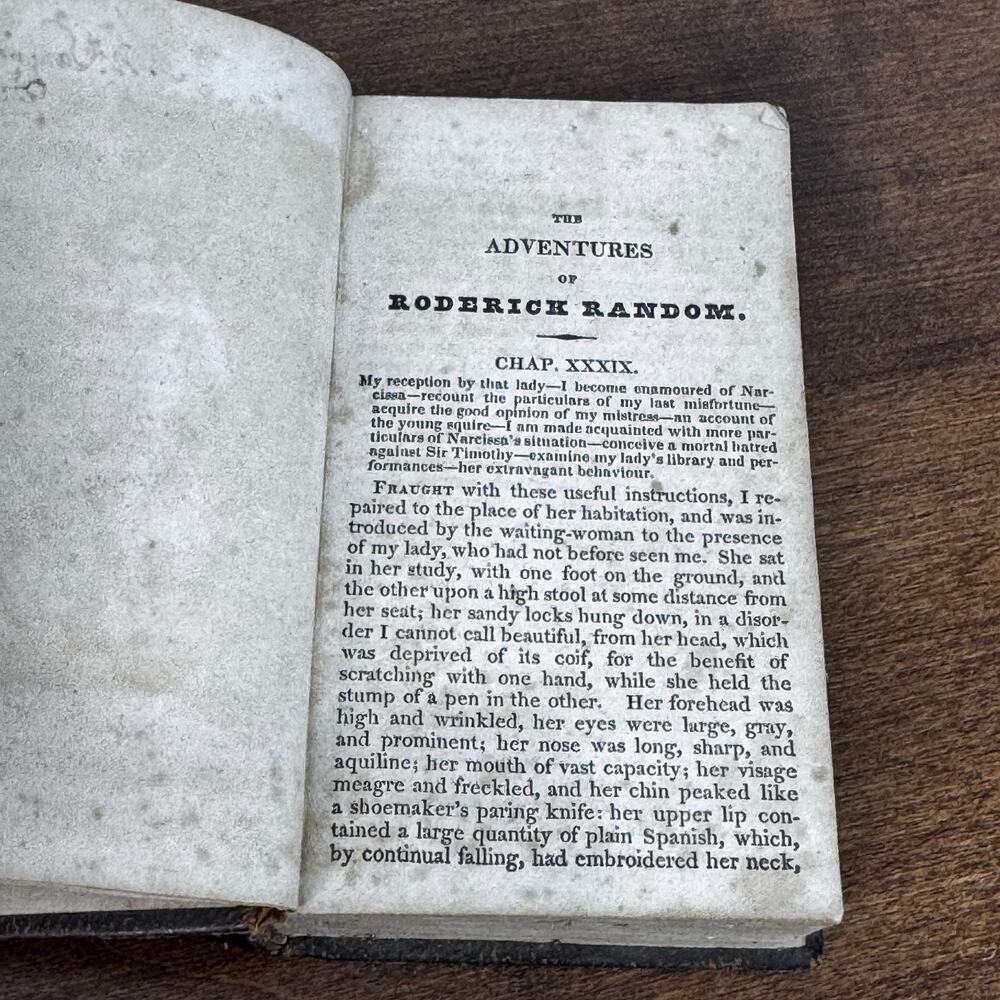 THE
ADVENTURES
OF
RODERICK RANDOM.
CHAP. XXXIX.
My reception by that lady—I become enamoured of Nar-
cissa—recount the particulars of my last misfortune—
acquire the good opinion of my mistress—an account of
the young squire—I am made acquainted with more par-
ticulars of Narcissa's situation—conceive a mortal hatred
against Sir Timothy—examine my lady's library and per-
formances—her extravagant behaviour.
FRAUGHT with these useful instructions, I re-
paired to the place of her habitation, and was in-
troduced by the waiting-woman to the presence
of my lady, who had not before seen me. She sat
in her study, with one foot on the ground, and
the other upon a high stool at some distance from
her seat; her sandy locks hung down, in a disor-
der I cannot call beautiful, from her head, which
was deprived of its coif, for the benefit of
scratching with one hand, while she held the
stump of a pen in the other. Her forehead was
high and wrinkled, her eyes were large, gray,
and prominent; her nose was long, sharp, and
aquiline; her mouth of vast capacity; her visage
meagre and freckled, and her chin peaked like
a shoemaker's paring knife: her upper lip con-
tained a large quantity of plain Spanish, which,
by continual falling, had embroidered her neck,